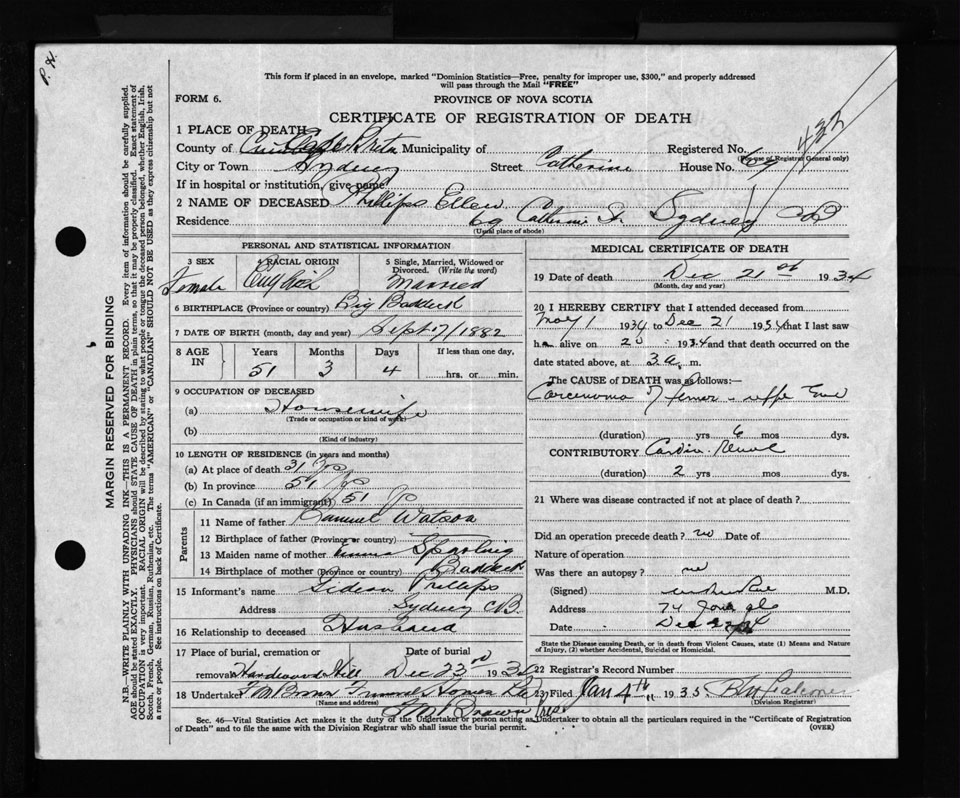 P. H.
This form if placed in an envelope, marked "Dominion Statistics—Free, penalty for improper use, $300," and properly addressed
will pass through the Mail "FREE"
FORM 6.
PROVINCE OF NOVA SCOTIA
CERTIFICATE OF REGISTRATION OF DEATH
432
1 PLACE OF DEATH
County of Cape Breton Municipality of Registered No.
(For use of Registrar General only)
City or Town Sydney Street Catherine House No. 69
If in hospital or institution, give name
2 NAME OF DECEASED Phillips Ellen
Residence 69 Catherine St. Sydney CB
(Usual place of abode)
PERSONAL AND STATISTICAL INFORMATION
3 SEX Female
4 RACIAL ORIGIN English
5 Single, Married, Widowed or Divorced. (Write the word) Married
6 BIRTHPLACE (Province or country) Big Baddeck
7 DATE OF BIRTH (month, day and year) Sept 17/1882
8 AGE IN Years Months Days If less than one day,
51 3 4 hrs. or min.
9 OCCUPATION OF DECEASED
(a) Housewife
(Trade or occupation or kind of work)
(b)
(Kind of industry)
10 LENGTH OF RESIDENCE (in years and months)
(a) At place of death 31 yrs
(b) In province 51 yrs
(c) In Canada (if an immigrant) 51 yrs
Parents
11 Name of father Samuel Watson
12 Birthplace of father (Province or country)
13 Maiden name of mother Emma Sparling
14 Birthplace of mother (Province or country) Baddeck
15 Informant's name Gideon Phillips
Address Sydney CB.
16 Relationship to deceased Husband
17 Place of burial, cremation or removal Hardwood Hill Date of burial Dec 23rd 1934
18 Undertaker Funeral Home
(Name and address)
Brown
MEDICAL CERTIFICATE OF DEATH
19 Date of death Dec 21st 1934
(Month, day and year)
20 I HEREBY CERTIFY that I attended deceased from
Nov 1 1934 to Dec 21 1934 that I last saw
h alive on 20 1934 and that death occurred on the
date stated above, at 3 a. m.
The CAUSE of DEATH was as follows:—
Carcinoma of femur
(duration) yrs 6 mos dys.
CONTRIBUTORY Cardio-Renal
(duration) 2 yrs mos dys.
21 Where was disease contracted if not at place of death?
Did an operation precede death? no Date of
Nature of operation
Was there an autopsy? no
(Signed) M.D.
Address 74
Date Dec 22/34
State the Disease causing Death, or in death from Violent Causes, state (1) Means and Nature
of Injury, (2) whether Accidental, Suicidal or Homicidal.
22 Registrar's Record Number
23 Filed Jan 4th 1935
(Division Registrar)
Sec. 46—Vital Statistics Act makes it the duty of the Undertaker or person acting as Undertaker to obtain all the particulars required in the "Certificate of Registration
of Death" and to file the same with the Division Registrar who shall issue the burial permit. (OVER)
MARGIN RESERVED FOR BINDING
N.B.—WRITE PLAINLY WITH UNFADING INK—THIS IS A PERMANENT RECORD. Every item of information should be carefully supplied.
AGE should be stated EXACTLY. PHYSICIANS should STATE CAUSE OF DEATH in plain terms, so that it may be properly classified. Exact statement of
OCCUPATION is very important. RACIAL ORIGIN will be described by stating to what people or tongue the deceased person belonged, whether English, Irish,
Scotch, French, German, Russian, Ruthenian, etc. The terms "AMERICAN" or "CANADIAN" SHOULD NOT BE USED as they express citizenship but not
a race or people. See instructions on back of Certificate.